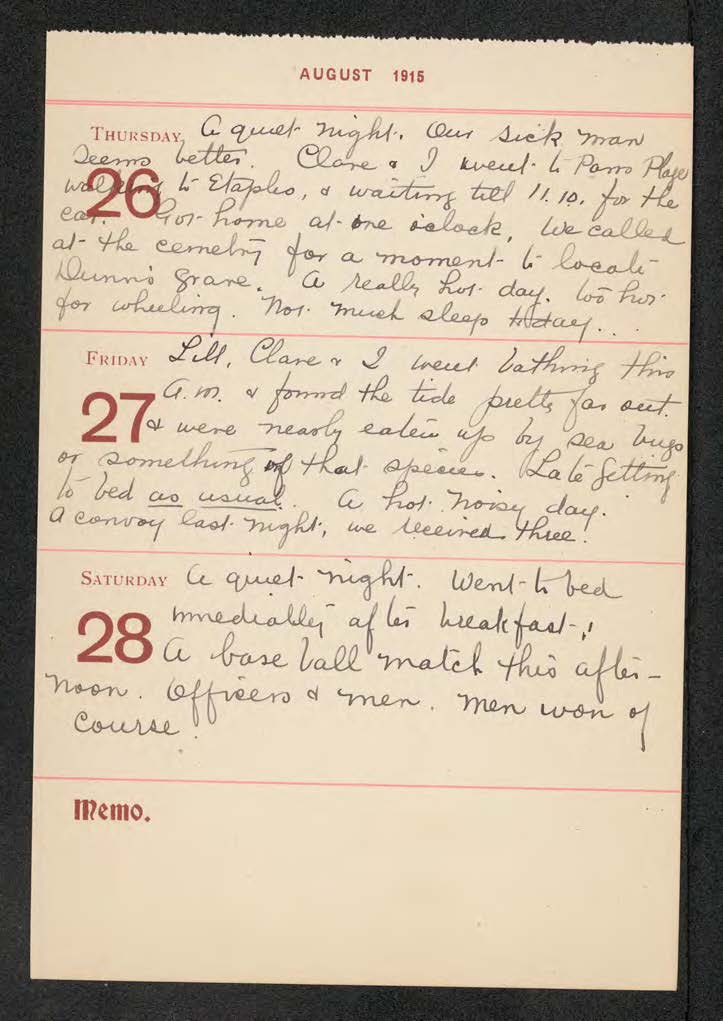 AUGUST 1915
THURSDAY A quiet night. Our sick man
seems better. Clare & I went to Paris Plage
26
walking to Etaples, & waiting till 11.10. for the
car. Got home at one oclock. We called
at the cemetry for a moment to locate
Dunn's grave. A really hot day. too hot
for wheeling. Not much sleep today...
FRIDAY Lill, Clare & I went bathing this
27
a.m. & found the tide pretty far out.
& were nearly eaten up by sea bugs
or something of that species. Late getting
to bed as usual. A hot noisy day.
A convoy last night, we received three.
SATURDAY A quiet night. Went to bed
28
immediately after breakfast.
A base ball match this after-
noon. Officers & men. Men won of
course.
Memo.